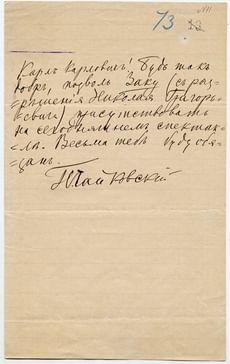 73 13
Карлъ Карловичъ! Будь такъ
добръ, позволь Заку (съ раз=
=рѣшенія Николая Григорь=
=евича) присутствовать
на сегодняшнемъ спектак=
лѣ. Весьма тебѣ буду обя=
=занъ.
П. Чайковскій